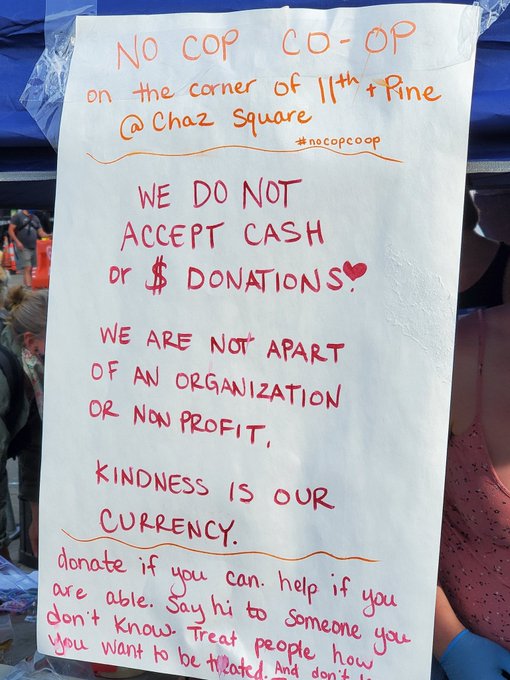 NO COP CO-OP
on the corner of 11th + Pine
@ Chaz Square
#nocopcoop
WE DO NOT
ACCEPT CASH
or $ DONATIONS!
WE ARE NOT APART
OF AN ORGANIZATION
OR NON PROFIT.
KINDNESS IS OUR
CURRENCY.
donate if you can. help if you
are able. Say hi to someone you
don't know. Treat people how
you want to be treated. And don't